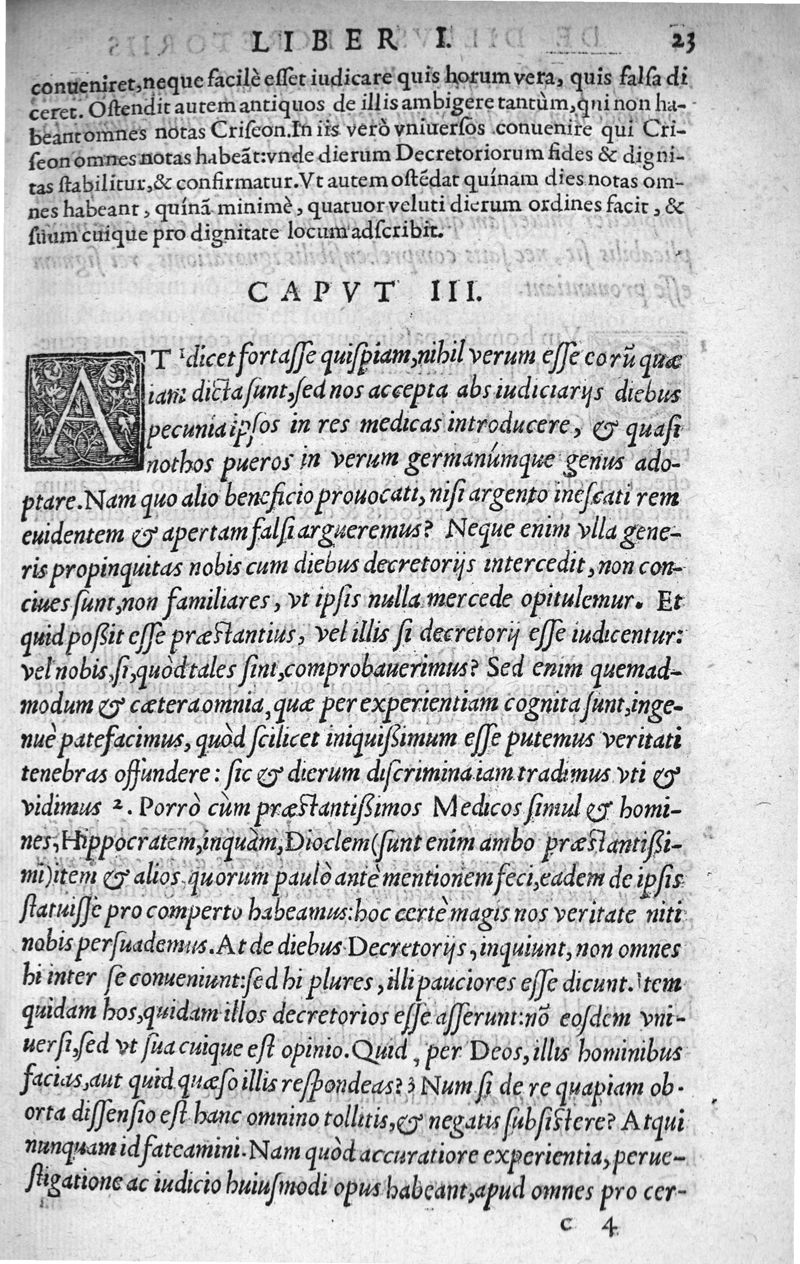 LIBER I. 23
conueniret,neque facilè esset iudicare quis horum vera, quis falsa di
ceret. Ostendit autem antiquos de illis ambigere tantùm,qui non ha-
beant omnes notas Criseon.In iis verò vniuersos conuenire qui Cri-
seon omnes notas habeãt:vnde dierum Decretoriorum fides & digni-
tas stabilitur,& confirmatur.Vt autem ostẽdat quínam dies notas om-
nes habeant, quínã minimè, quatuor veluti dierum ordines facit, &
suum cuique pro dignitate locum adscribit.
CAPVT III.
AT ¹dicet fortasse quispiam,nihil verum esse eorũ quæ
iam dicta sunt,sed nos accepta abs iudiciarijs diebus
pecunia ipsos in res medicas introducere, & quasi
nothos pueros in verum germanúmque genus ado-
ptare.Nam quo alio beneficio prouocati, nisi argento inescati rem
euidentem & apertam falsi argueremus? Neque enim vlla gene-
ris propinquitas nobis cum diebus decretorijs intercedit, non con-
ciues sunt,non familiares, vt ipsis nulla mercede opitulemur. Et
quid poßit esse præstantius, vel illis si decretorij esse iudicentur:
vel nobis,si,quòd tales sint,comprobauerimus? Sed enim quemad-
modum & cætera omnia,quæ per experientiam cognita sunt,inge-
nuè patefacimus, quòd scilicet iniquißimum esse putemus veritati
tenebras offundere: sic & dierum discrimina iam tradimus vti &
vidimus 2. Porrò cùm præstantißimos Medicos simul & homi-
nes,Hippocratem,inquàm,Dioclem(sunt enim ambo præstantißi-
mi)item & alios quorum paulò antè mentionem feci,eadem de ipsis
statuisse pro comperto habeamus:hoc certè magis nos veritate niti
nobis persuademus.At de diebus Decretorijs,inquiunt,non omnes
hi inter se conueniunt:sed hi plures, illi pauciores esse dicunt.Item
quidam hos,quidam illos decretorios esse asserunt:nõ eosdem vni-
uersi,sed vt sua cuique est opinio.Quid, per Deos, illis hominibus
facias,aut quid quæso illis respondeas? 3 Num si de re quapiam ob-
orta dissensio est hanc omnino tollitis,& negatis subsistere? Atqui
nunquam id fateamini.Nam quòd accuratiore experientia, perue-
stigatione ac iudicio huiusmodi opus habeant,apud omnes pro cer-
c 4